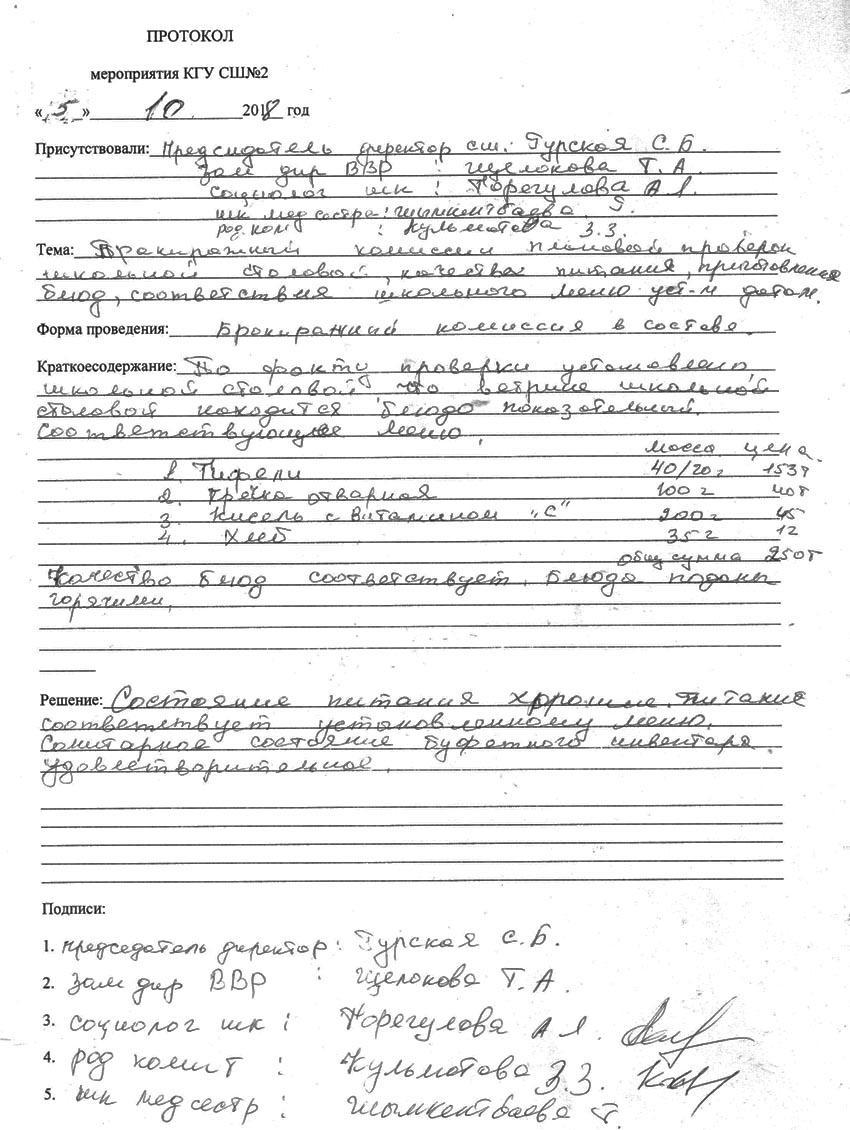 ПРОТОКОЛ
мероприятия КГУ СШ№2
« 5 » 10 2018 год
Присутствовали: Председатель директор сш: Гурская С.Б.
Зам дир ВВР : Щелокова Т.А
социолог шк : Торегулова А Я.
шк мед сестра: Шымкентбаева Г.
род. ком : Кульматова З.З.
Тема: Бракиражный комиссии плановой проверок
школьной столовой, качества питания, приготовления
блюд, соответствия школьного меню уст-м датам.
Форма проведения: Бракиражный комиссия в составе.
Краткоесодержание: По факту проверки установлено
школьной столовой что ветрине школьной
столовой находится блюдо показательный
соответствующие меню.
масса цена
1. Тифтели 40/20г 153т
2. Гречка отварная 100 г 40т
3. Кисель с витамином "С" 200 г 45
4. Хлеб 35 г 12
общ сумма 250т
Качество блюд соответствует, блюда поданы
горячими,
Решение: Состояние питания хорошие. Питание
соответствует установленному меню.
Санитарное состояние буфетного инвентаря.
удовлетворительное.
Подписи:
1. председатель директор: Гурская С.Б.
2. Зам дир ВВР : Щелокова Т.А.
3. социолог шк : Торегулова А Я.
4. род комит : Кульматова З.З.
5. шк мед сестр : Шымкентбаева Г.